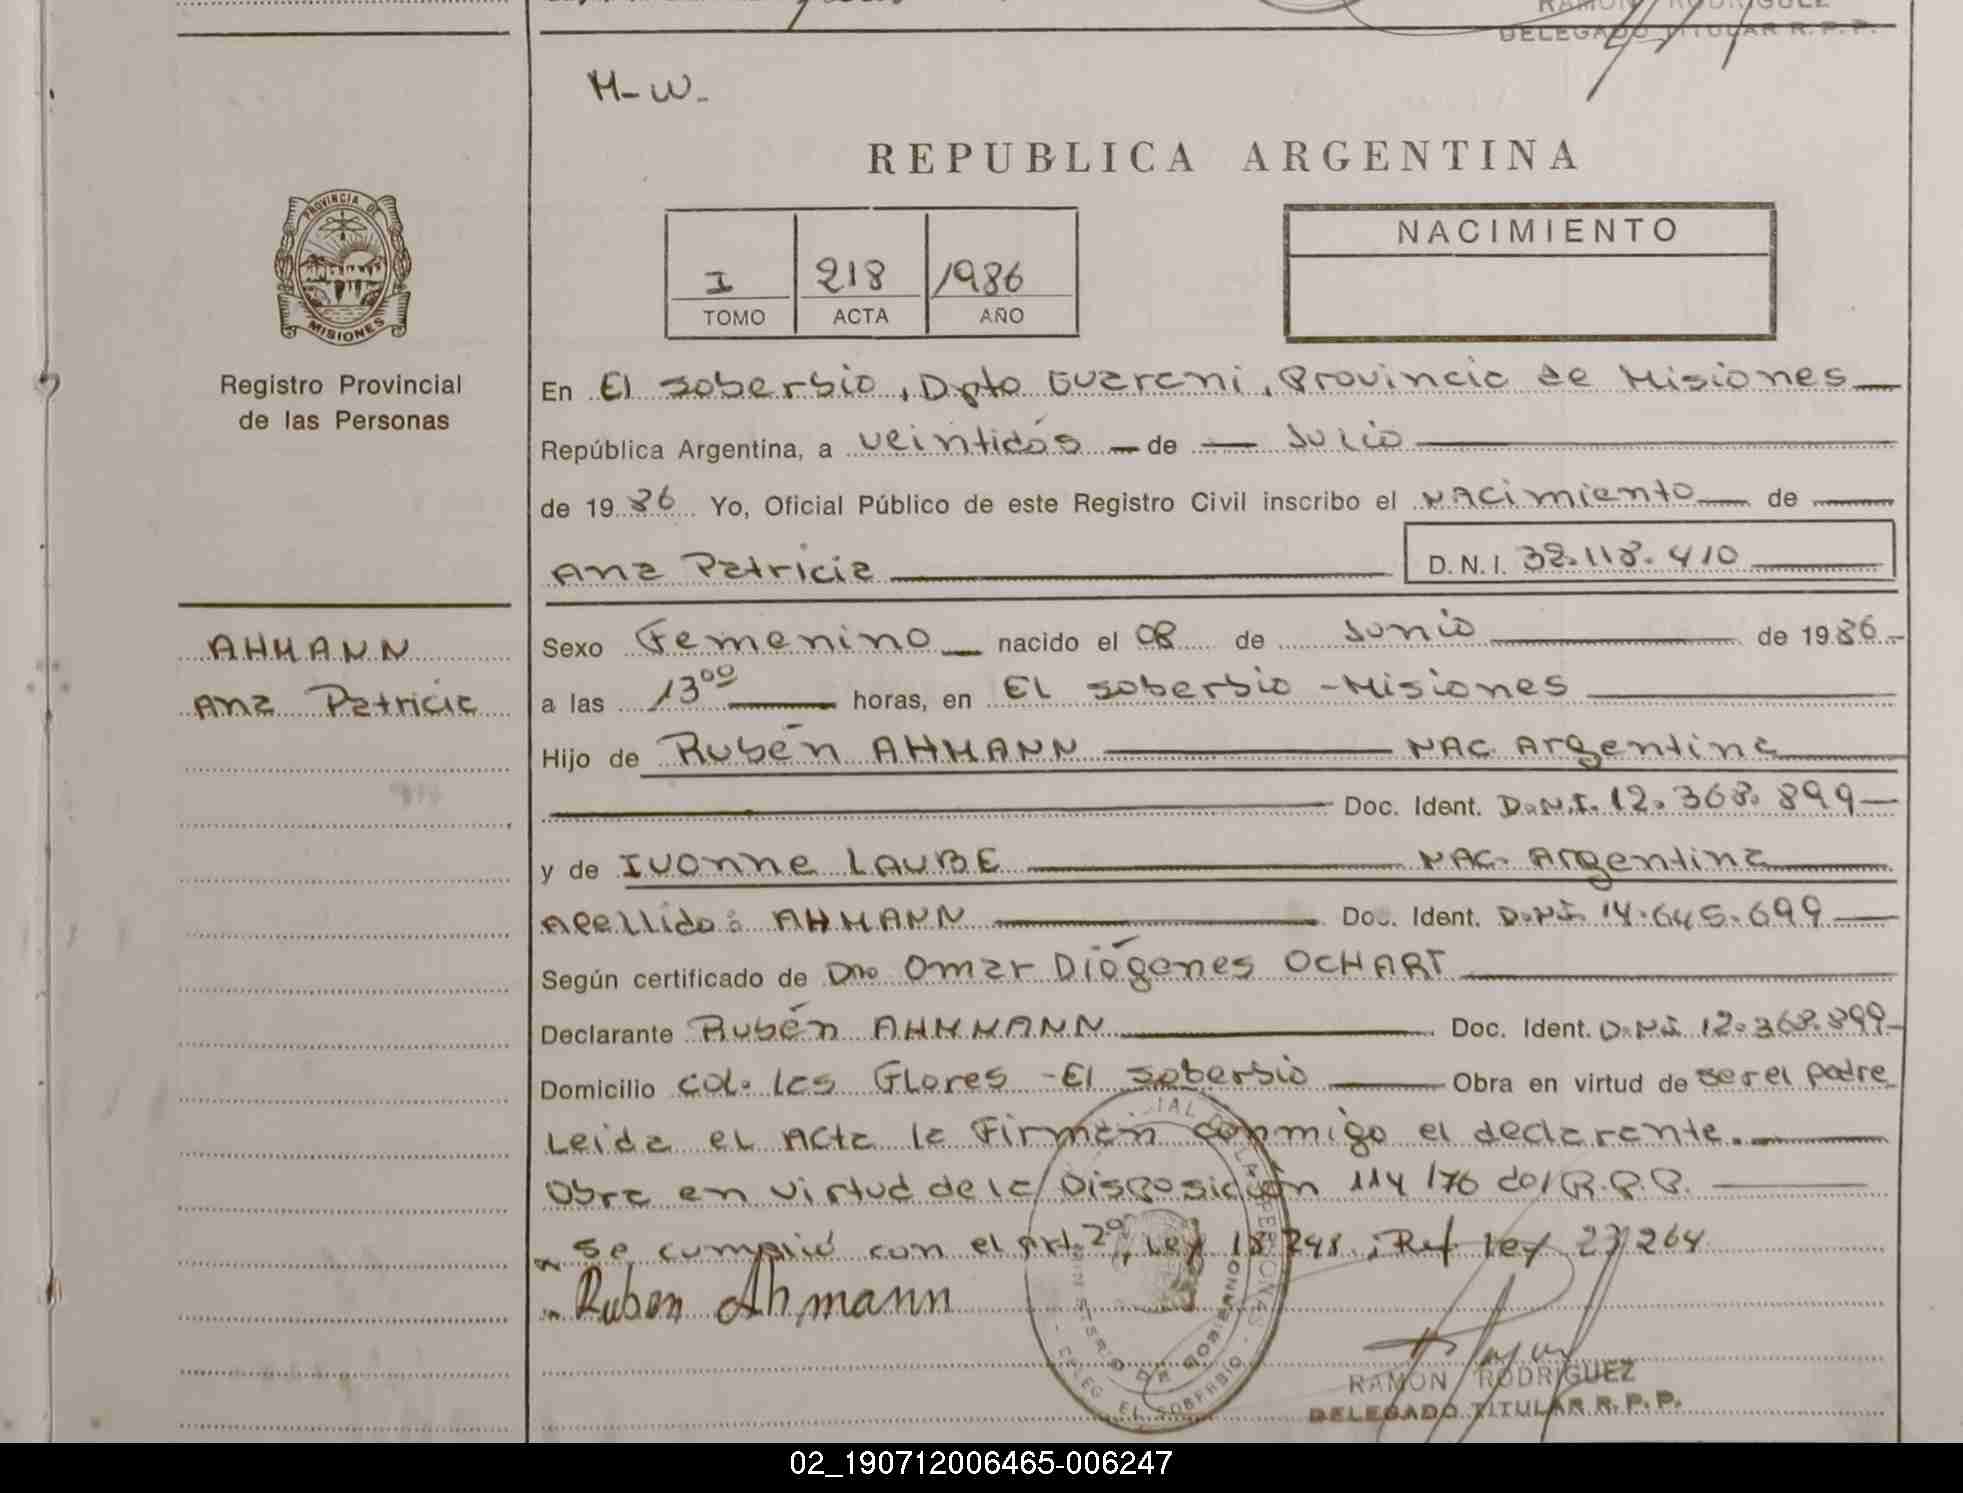 RAMON RODRIGUEZ
DELEGADO TITULAR R. P. P.
H-W-
REPUBLICA ARGENTINA
PROVINCIA DE
MISIONES
Registro Provincial
de las Personas
I 218 1986
TOMO ACTA AÑO
NACIMIENTO
En El Soberbio, Dpto Guarani, Provincia de Misiones
República Argentina, a veintidós de Julio
de 1986 Yo, Oficial Público de este Registro Civil inscribo el NACimiento de
Ana Patricia D.N.I. 32.118.410
AHMANN
Ana Patricia
Sexo Femenino nacido el 08 de Junio de 1986
a las 13 00 horas, en El Soberbio - Misiones
Hijo de Rubén AHMANN NAC. Argentina
Doc. Ident. D.N.I. 12.368.899
y de Ivonne LAUBE NAC. Argentina
Apellido: AHMANN Doc. Ident. D.N.I. 14.645.699
Según certificado de Omar Diógenes OCHART
Declarante Rubén AHMMANN Doc. Ident. D.N.I. 12.368.899
Domicilio Col. las Flores - El Soberbio Obra en virtud de ser el padre
Leida el Acta la Firman conmigo el declarante.
Obra en virtud de la Disposición 114/76 del R.P.P.
Se cumplió con el art. 2º, Ley 18248, Ref. Ley 23264
Ruben Ahmann
MINISTERIO DE GOBIERNO
EL SOBERBIO
RAMON RODRIGUEZ
DELEGADO TITULAR R. P. P.
02_190712006465-006247